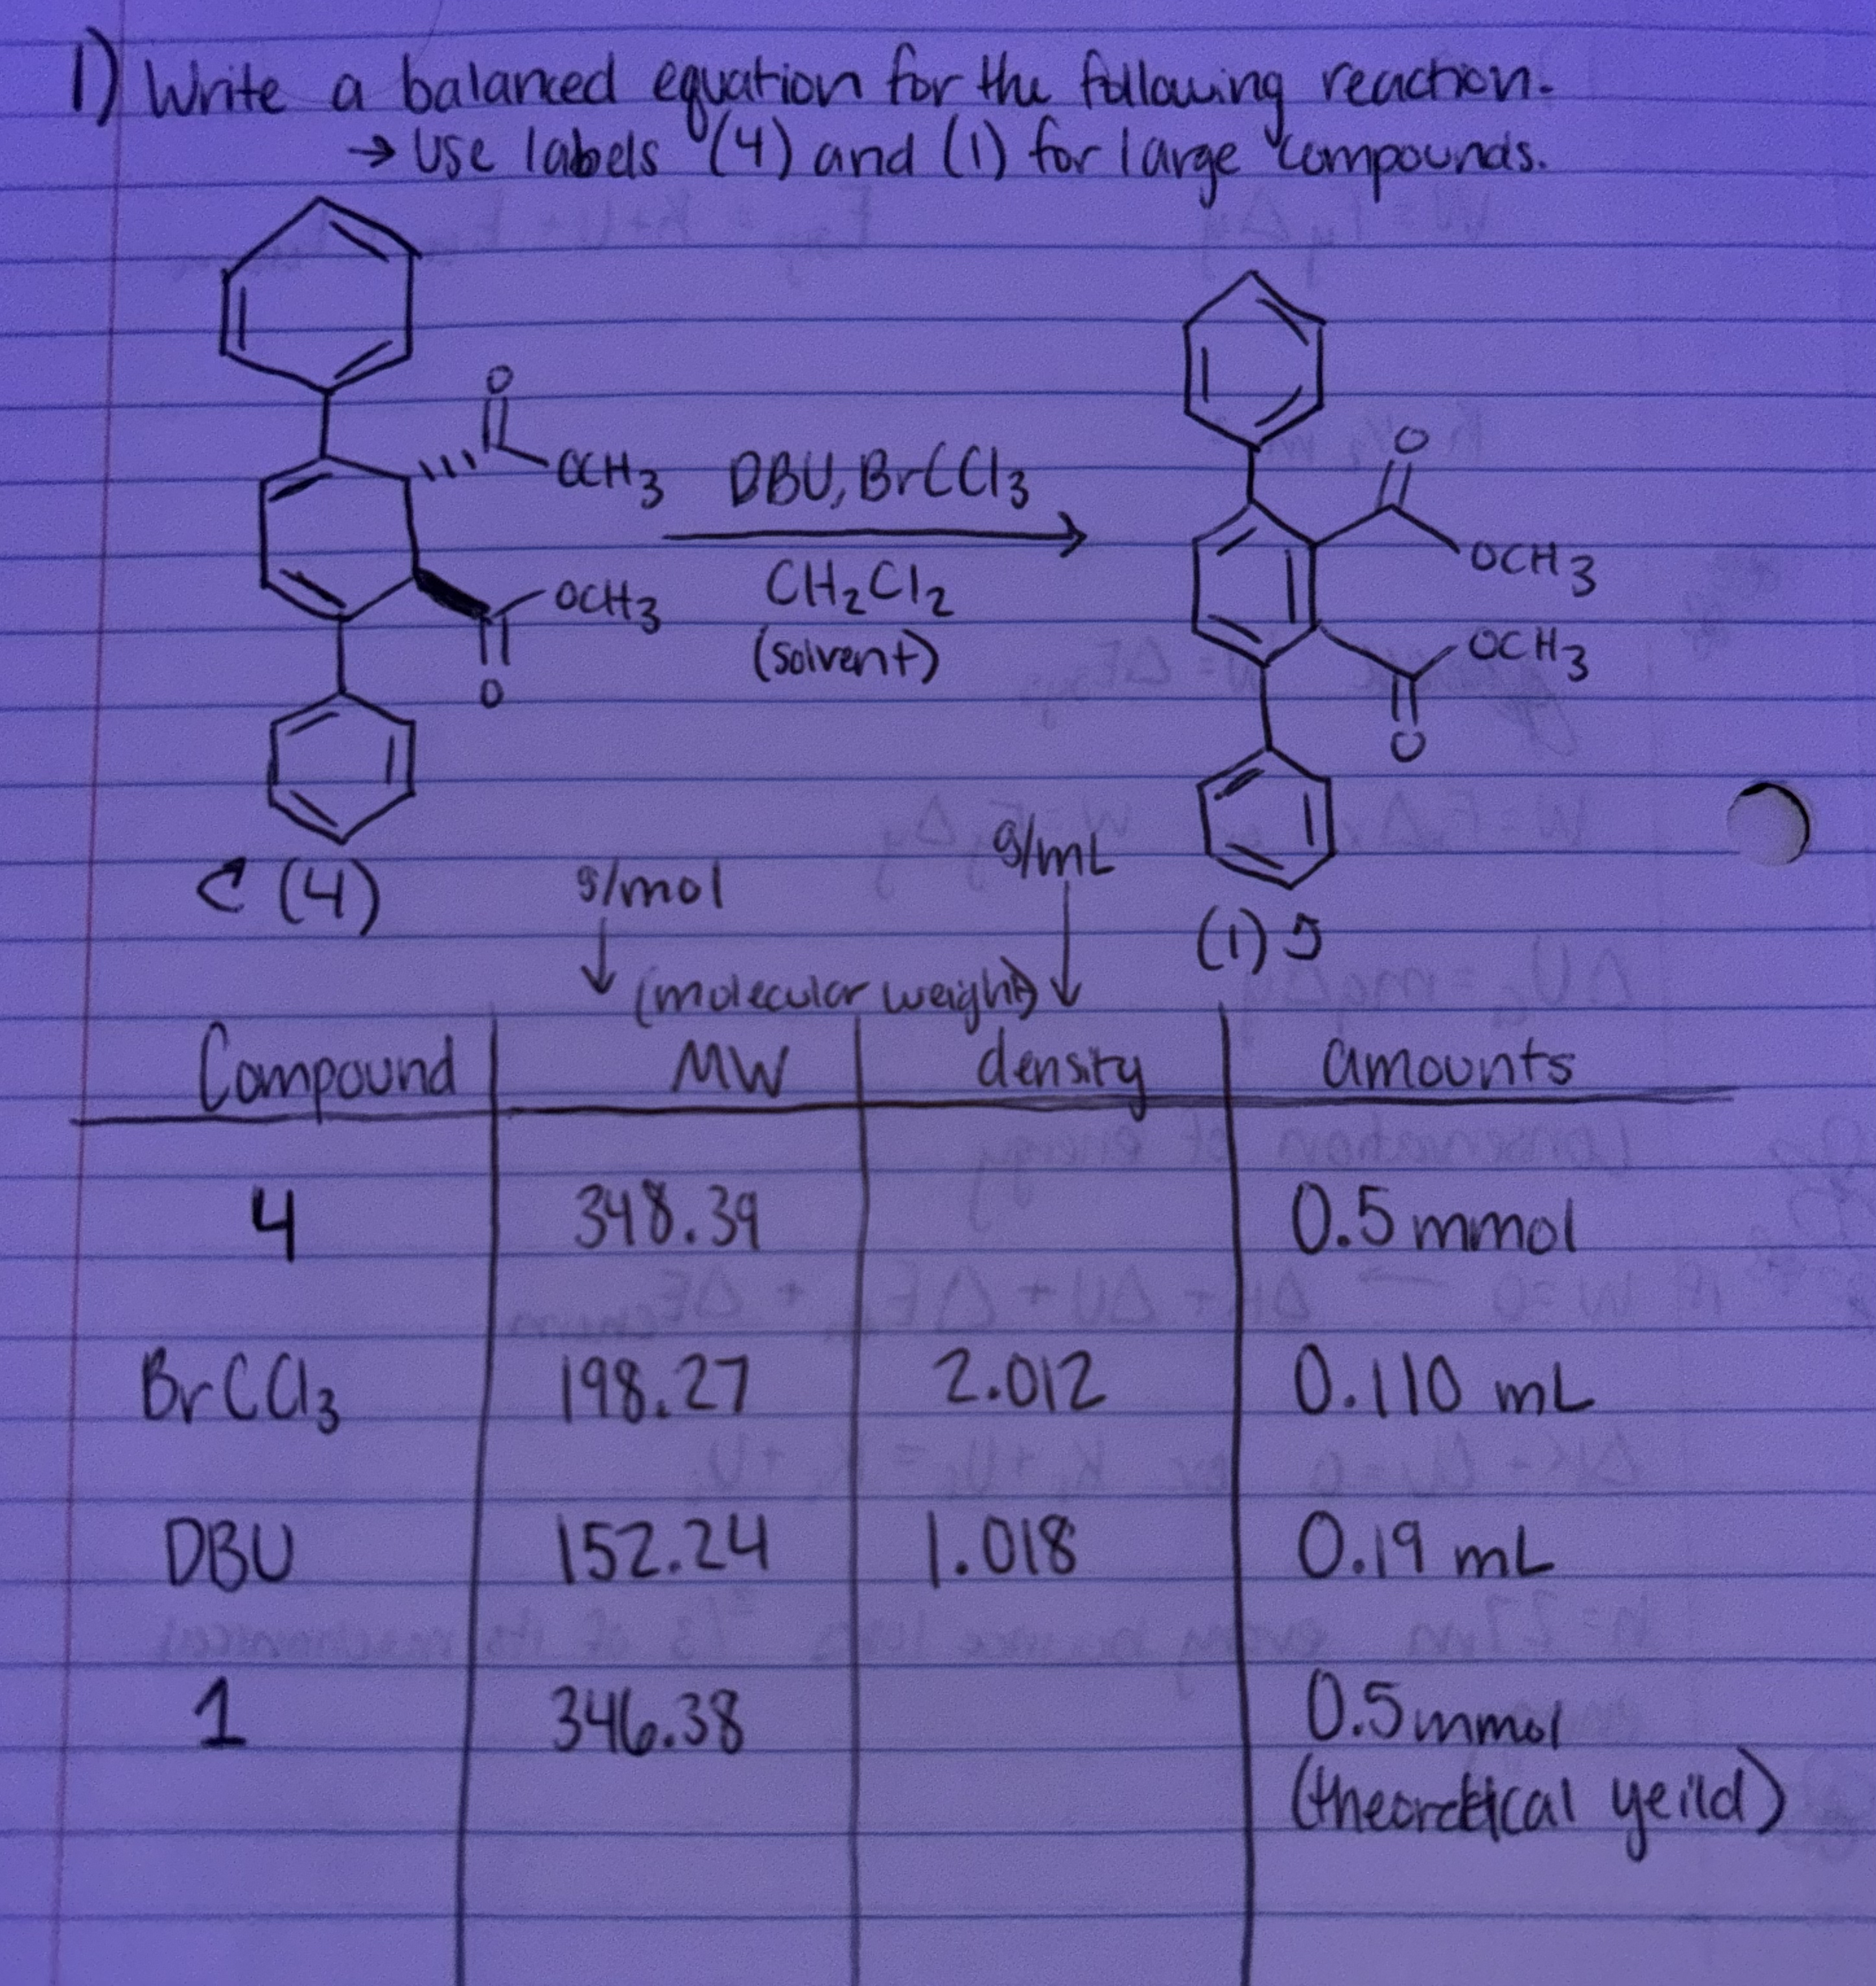 1) Write a balanced equation for the following reaction.
→ Use labels (4) and (1) for large compounds.
O
OCH3
DBU, BrCCl3
CH2Cl2
(solvent)
OCH3
O
O
OCH3
OCH3
O
(4)
g/mol
g/mL
(1)
(molecular weight)
Compound MW density amounts
4 348.39 0.5 mmol
BrCCl3 198.27 2.012 0.110 mL
DBU 152.24 1.018 0.19 mL
1 346.38 0.5 mmol
(theoretical yeild)